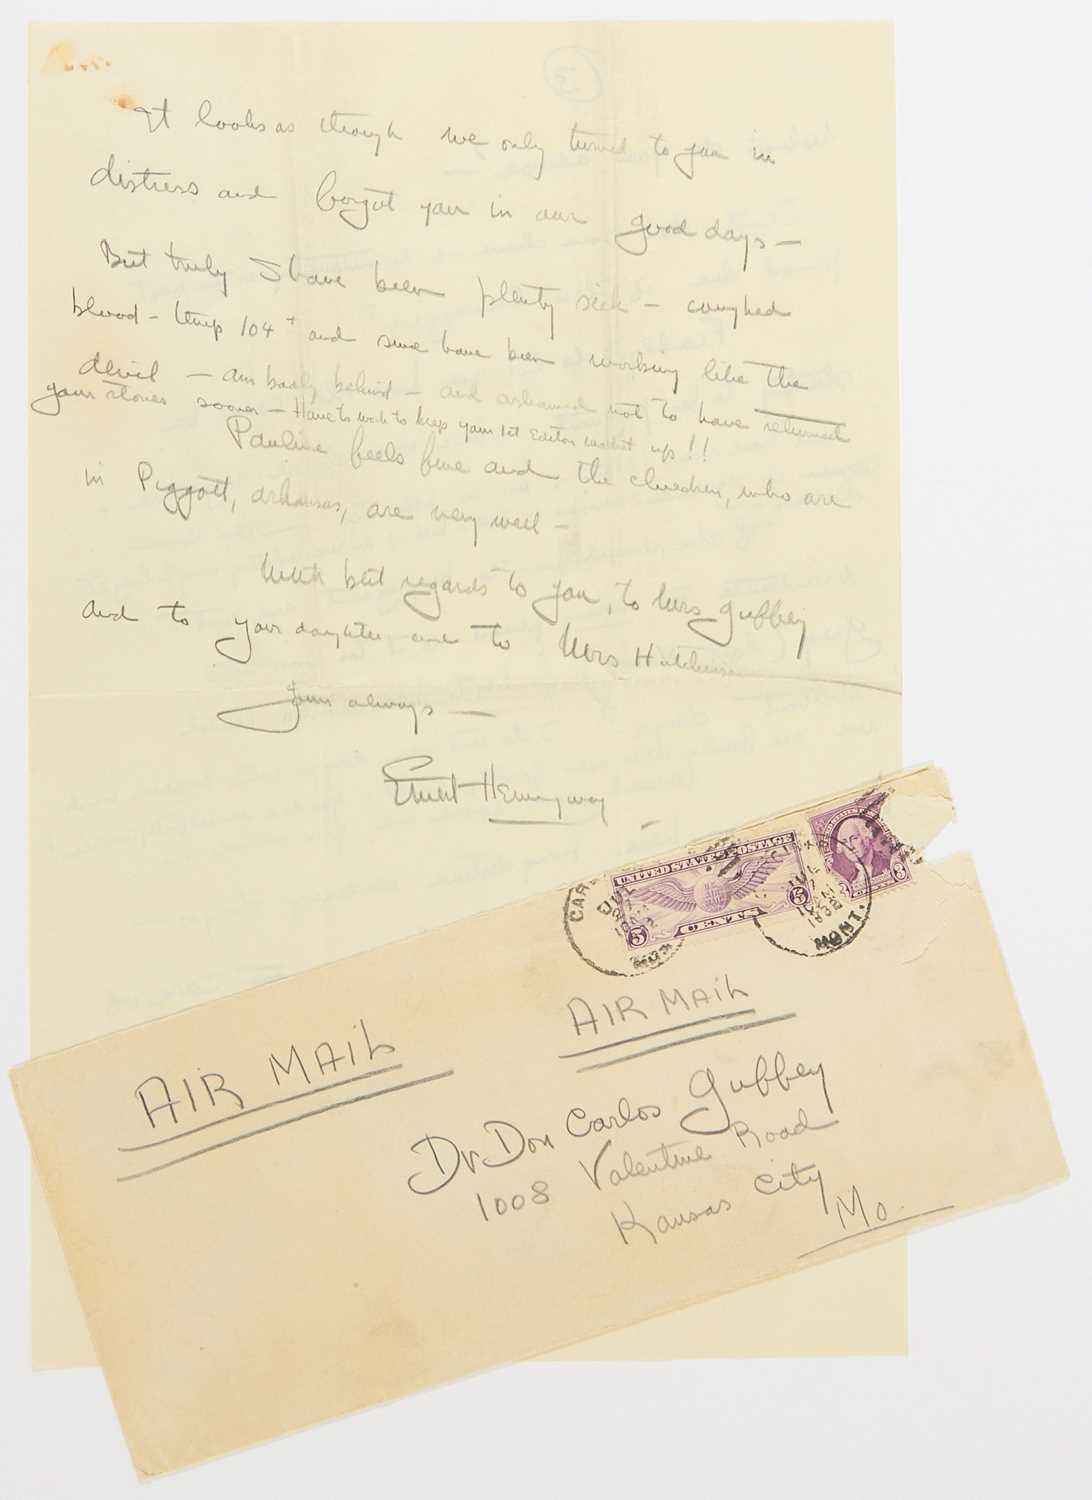 3
It looks as though we only turned to you in
distress and forgot you in our good days —
But truly I have been plenty sick — coughed
blood — temp 104 + and since have been working like the
devil — am badly behind — and ashamed not to have returned
your stories sooner — Have to work to keep your 1st Edition market up!!
Pauline feels fine and the children, who are
in Piggott, Arkansas, are very well —
With best regards to you, to Mrs Guffey
and to your daughter and to Mrs Hutchinson
Yours always —
Ernest Hemingway
UNITED STATES POSTAGE
5 CENTS 5
UNITED STATES POSTAGE
3 CENTS 3
JUL
1932
MONT.
AIR MAIL
AIR MAIL
Dr Don Carlos Guffey
1008 Valentine Road
Kansas City
Mo.